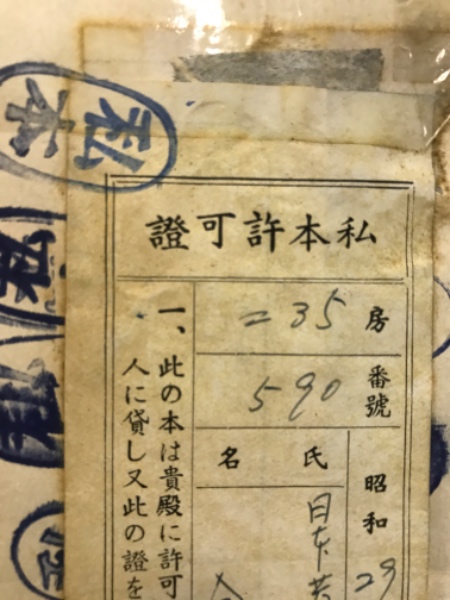 私本
私本許可證
房 二35
番號 590
昭和 29
氏名
日本
一、此の本は貴殿に許可
人に貸し又此の證を